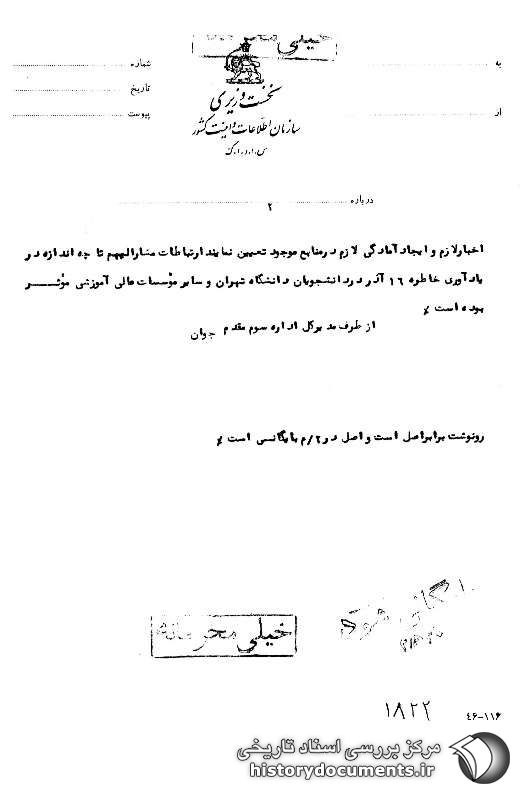 خیلی محرمانه
به
شماره
نخست وزیری
تاریخ
از
سازمان اطلاعات و امنیت کشور
پیوست
س.ا.و.ا.ک
درباره
۲
اخبار لازم و ایجاد آمادگی لازم در منابع موجود تعیین نمایند ارتباطات مشارالیهم تا چه اندازه در
یادآوری خاطره ۱۶ آذر در دانشجویان دانشگاه تهران و سایر مؤسسات عالی آموزشی مؤثر
بوده است ٪
از طرف مدیرکل اداره سوم مقدم جوان
رونوشت برابر اصل است و اصل در ۲/م بایگانسی است ٪
بایگانی شود
خیلی محرمانه
۱۸۲۲
۴۶-۱۱۶
مرکز بررسی اسناد تاریخی
historydocuments.ir